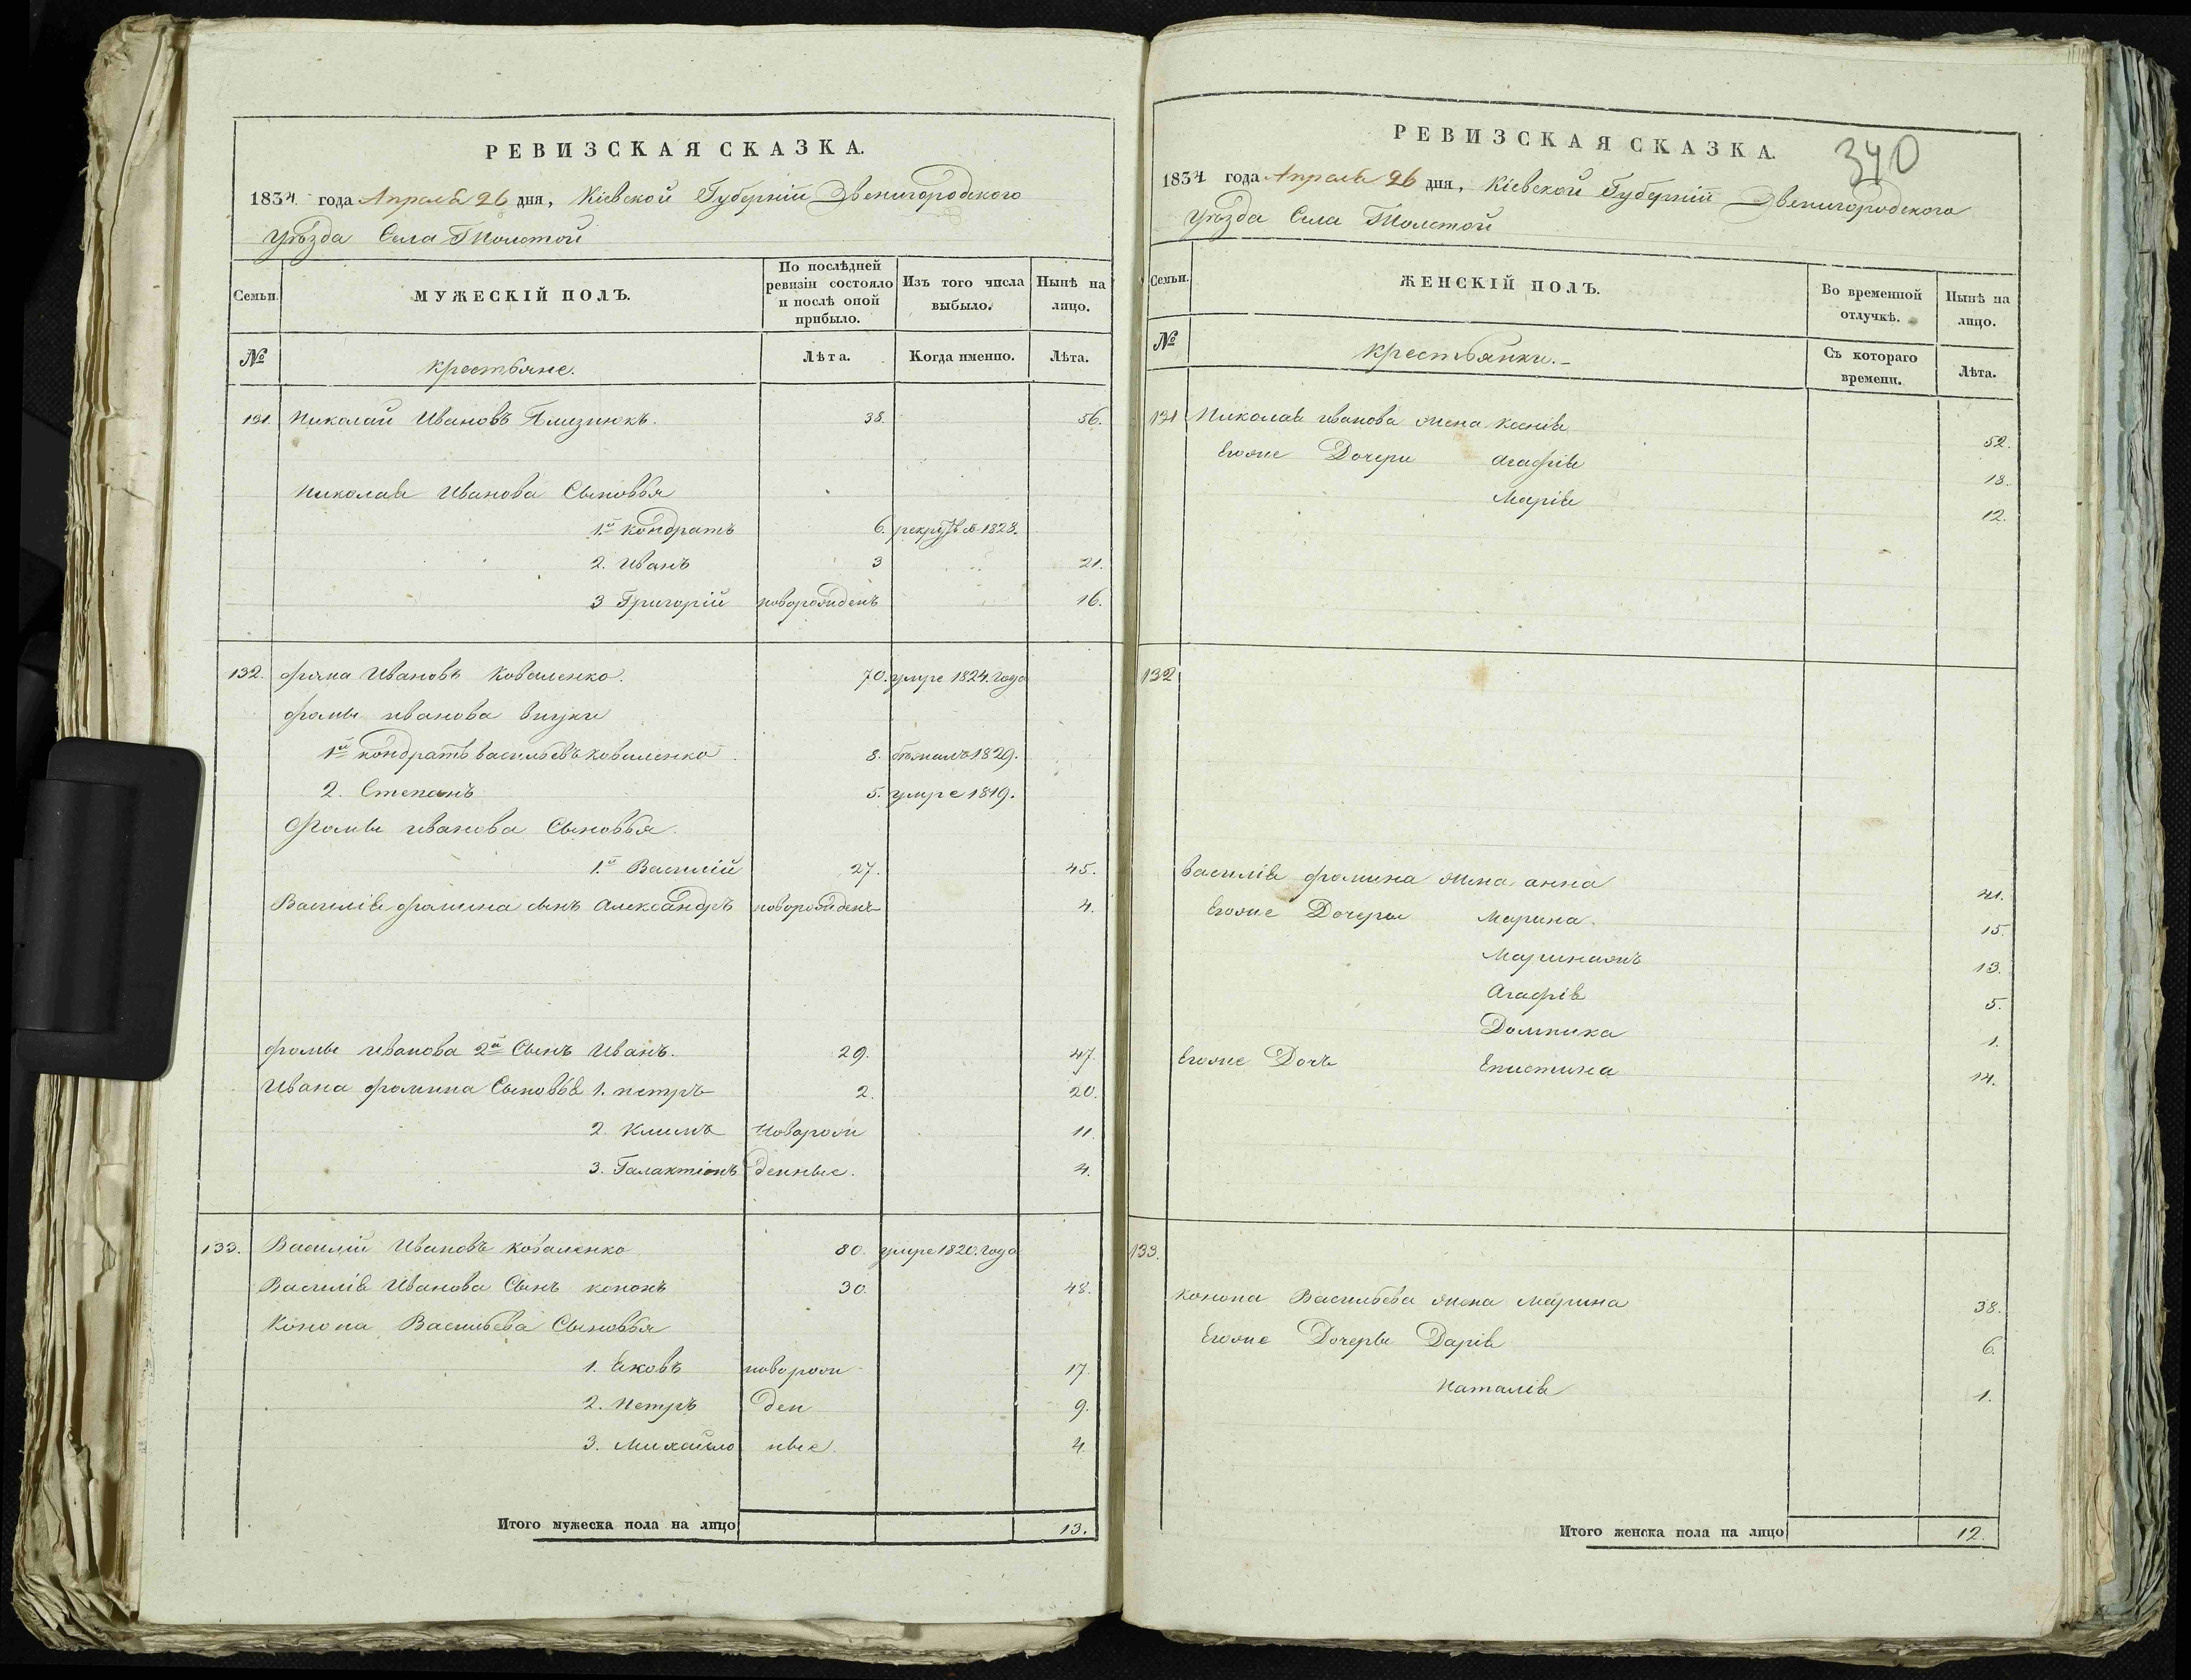 РЕВИЗСКАЯ СКАЗКА.
1834 года Апреля 26 дня, Кіевской Губерніи Звенигородского
Уѣзда Села Толстой
Семьи.
МУЖЕСКІЙ ПОЛЪ.
По послѣдней ревизіи состояло и послѣ оной прибыло.
Изъ того числа выбыло.
Нынѣ на лицо.
№
крестьяне.
Лѣта.
Когда именно.
Лѣта.
131. Николай Ивановъ 38. 56.
Николая Иванова Сыновья
1й Кондратъ 6. 1828.
2. Иванъ 3 21.
3 Григорій новорожденъ 16.
132. Фома Ивановъ Коваленко. 70. умре 1824. года
Фомы иванова внуки
1й кондратъ васильевъ коваленко 8. бѣжалъ 1829.
2. Степанъ 5. умре 1819.
Фомы иванова Сыновья.
1й Василій 27. 45.
Василія фомина сынъ Александръ новорожденъ 4.
фомы иванова 2й Сынъ Иванъ. 29. 47.
Ивана фомина Сыновья 1. петръ 2. 20.
2. Климъ Новорож 11.
3. Галактіонъ денные. 4.
133. Василій Ивановъ коваленко 80. умре 1820. года
Василія Иванова Сынъ кононъ 30. 48.
Конона Васильева Сыновья
1. Яковъ новорож 17.
2. Петръ ден 9.
3. Михайло ные. 4.
Итого мужеска пола на лицо 13.
РЕВИЗСКАЯ СКАЗКА.
340
1834 года Апреля 26 дня, Кіевской Губерніи Звенигородского
Уѣзда Села Толстой
Семьи.
ЖЕНСКІЙ ПОЛЪ.
Во временной отлучкѣ.
Нынѣ на лицо.
№
крестьянки.
Съ котораго времени.
Лѣта.
131 Николая иванова жена ксенія 52.
Егоже Дочери агафія 18.
Марія 12.
132
Василія фомина жена анна 41.
Егоже Дочери Марина. 15.
Маринажъ 13.
Агафія 5.
Домника 1.
Егоже Дочъ Епистина 14.
133.
Конона Васильева жена Марина 38.
Егоже Дочеры Дарія 6.
Наталія 1.
Итого женска пола на лицо 12.